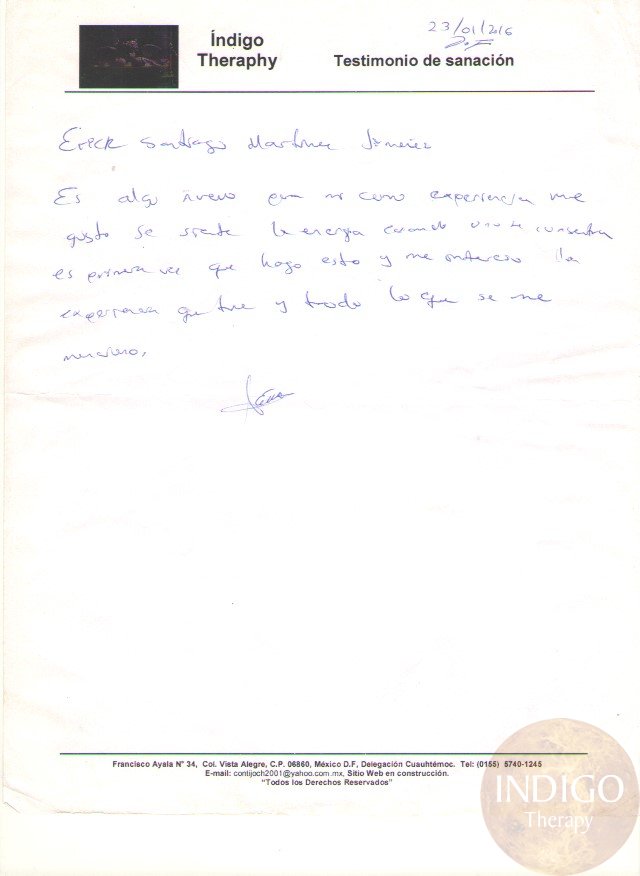 23/01/2016
Índigo
Theraphy
Testimonio de sanación
Erick Santiago Martinez Jimenez
Es algo nuevo para mi como experiencia me
gusto se siente la energia cuando uno se concentra
es primera vez que hago esto y me intereso la
experiencia que tuve y todo lo que se me
Francisco Ayala N° 34, Col. Vista Alegre, C.P. 06860, México D.F, Delegación Cuauhtémoc. Tel: (0155) 5740-1245
E-mail: contijoch2001@yahoo.com.mx, Sitio Web en construcción.
"Todos los Derechos Reservados"
INDIGO
Therapy